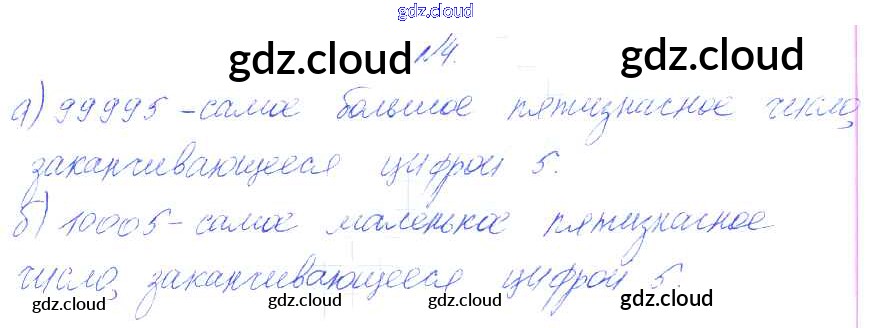 gdz.cloud
gdz.cloud №4. gdz.cloud
а) 99995 - самое большое пятизначное число,
заканчивающееся цифрой 5.
б) 10005 - самое маленькое пятизначное
число, заканчивающееся цифрой 5.
gdz.cloud gdz.cloud gdz.cloud gdz.cloud